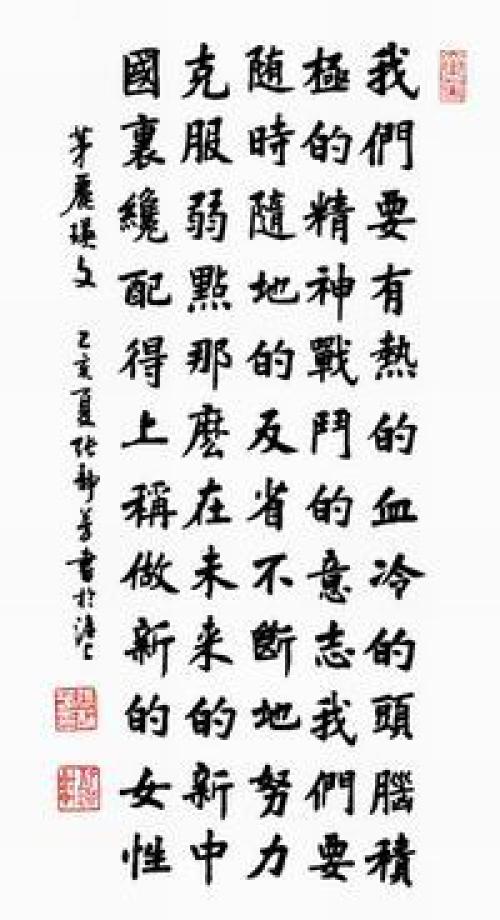 我們要有熱的血冷的頭腦積
極的精神戰鬥的意志我們要
随時隨地的反省不斷地努力
克服弱點那麽在未来的新中
國裏纔配得上稱做新的女性
茅麗瑛文 己亥夏张静芳書於滬上